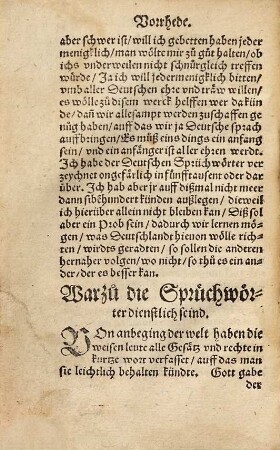 Vorrhede.
aber schwer ist/ will ich gebetten haben jeder
menigklich/ man wölte mir zů gůt halten/ ob
ichs underweilen nicht schnürgleich treffen
würde/ Ja ich will jedermenigklich bitten/
umb aller Deutschen ehre und träw willen/
es wölle zů disem werck helffen wer da küñ
de/ dañ wir allesampt werden zuschaffen ge
nůg haben/ auff das wir ja Deutsche sprach
auffbringen/ Es můß eins dings ein anfang
sein/ und ein anfänger ist aller ehren werde.
Ich habe der Deutschen Sprüchwörter ver
zeychnet ongefärlich in fünfftausent oder dar
über. Ich hab aber jr auff dißmal nicht meer
dann sibenhundert künden außlegen/ dieweil
ich hierüber allein nicht bleiben kan/ Diß sol
aber ein Prob sein/ dadurch wir lernen mö-
gen/ was Deutschlandt hienon wölle rich-
ten/ wirdts geradten/ so sollen die anderen
hernaher volgen/ wo nicht/ so thů es ein an-
der/ der es besser kan.
Warzů die Sprüchwör-
ter dienstlich seind.
VOn anbeging der welt haben die
weisen leute alle Gesätz und rechte in
kurtze wort verfasset/ auff das man
sie leichtlich behalten kündte. Gott gabe
der